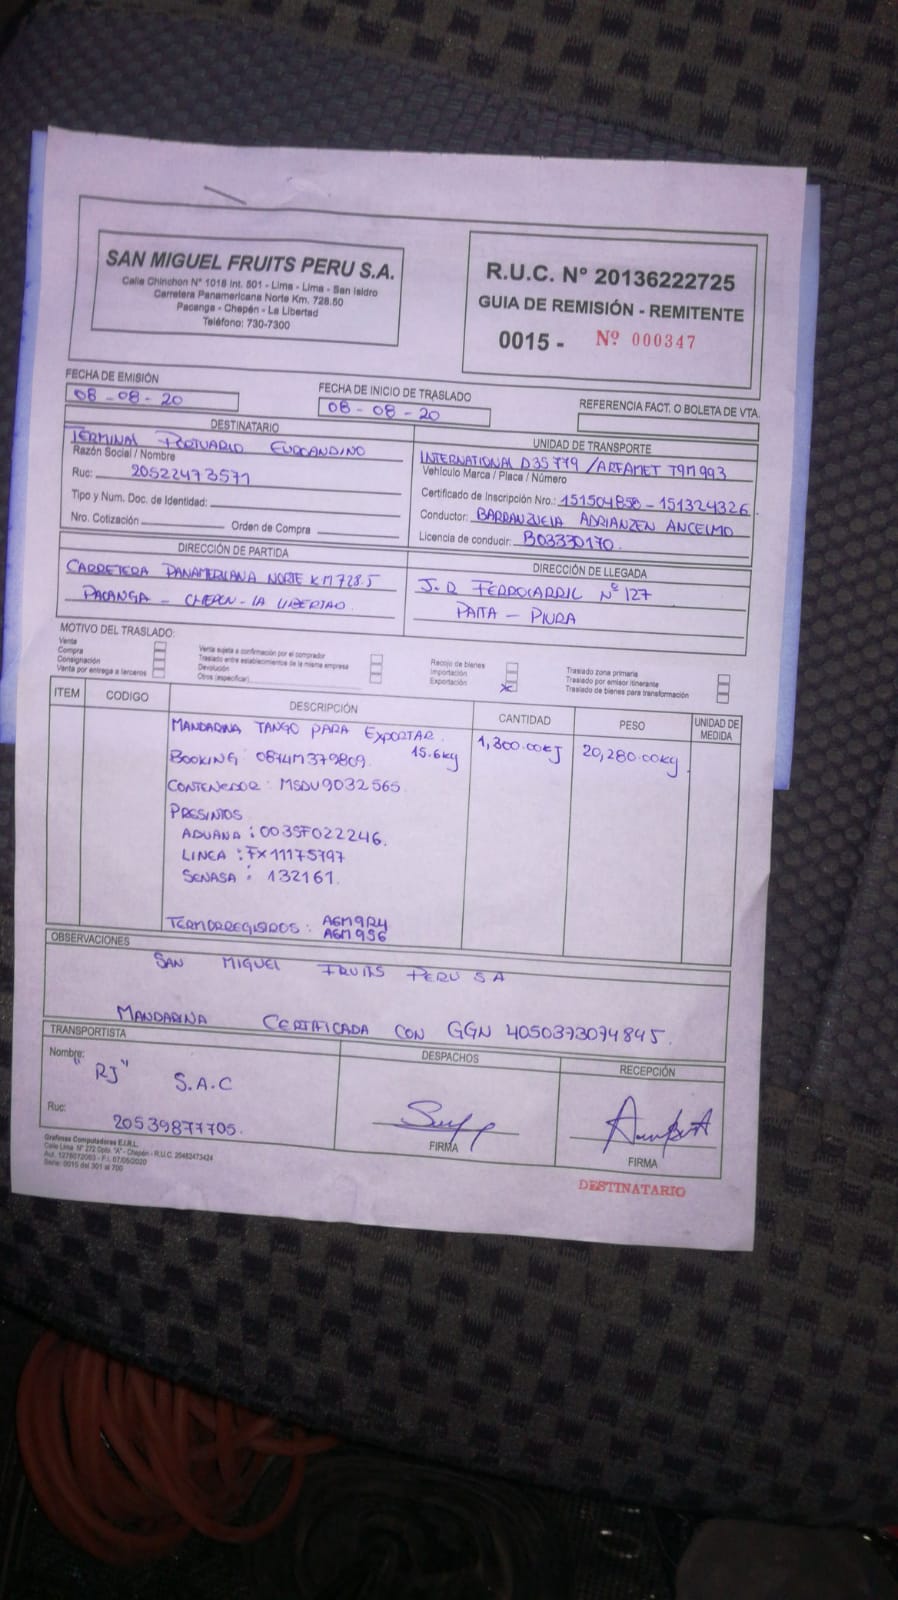 SAN MIGUEL FRUITS PERU S.A.
Calle Chinchon Nº 1018 Int. 501 - Lima - Lima - San Isidro
Carretera Panamericana Norte Km. 728.50
Pacanga - Chepén - La Libertad
Teléfono: 730-7300
R.U.C. Nº 20136222725
GUIA DE REMISIÓN - REMITENTE
0015 - Nº 000347
FECHA DE EMISIÓN
08-08-20
FECHA DE INICIO DE TRASLADO
08-08-20
REFERENCIA FACT. O BOLETA DE VTA.
DESTINATARIO
TERMINAL PORTUARIO EUROANDINO
Razón Social / Nombre
Ruc: 20522473571
Tipo y Num. Doc. de Identidad:
Nro. Cotización Orden de Compra
UNIDAD DE TRANSPORTE
INTERNATIONAL D35779 / ARFAMET T9M993
Vehículo Marca / Placa / Número
Certificado de Inscripción Nro.: 151504858 - 151324326
Conductor: BARRANZUELA ADRIANZEN ANCELMO
Licencia de conducir: B03330170.
DIRECCIÓN DE PARTIDA
CARRETERA PANAMERICANA NORTE KM 728.5
PACANGA - CHEPEN - LA LIBERTAD.
DIRECCIÓN DE LLEGADA
J.R FERROCARRIL Nº 127
PAITA - PIURA
MOTIVO DEL TRASLADO:
Venta
Compra
Consignación
Venta por entrega a terceros
Venta sujeta a confirmación por el comprador
Traslado entre establecimientos de la misma empresa
Devolución
Otros (especificar)
Recojo de bienes
Importación
Exportación X
Traslado zona primaria
Traslado por emisor itinerante
Traslado de bienes para transformación
ITEM CODIGO DESCRIPCIÓN CANTIDAD PESO UNIDAD DE MEDIDA
MANDARINA TANGO PARA EXPORTAR. 1,300.00 20,280.00kg
BOOKING: 15.6kg
CONTENEDOR: MSDU9032565.
PRESINTOS
ADUANA: 0035F022246.
LINEA: FX11175797
SENASA: 132161.
TERMORREGISTROS: A6M9R4
A6M9S6
OBSERVACIONES
SAN MIGUEL FRUITS PERU S A
MANDARINA CERTIFICADA CON GGN 4050373074845.
TRANSPORTISTA
Nombre: "RJ" S.A.C
Ruc: 20539877705.
DESPACHOS
FIRMA
RECEPCIÓN
FIRMA
Grafimas Computadoras E.I.R.L.
Calle Lima Nº 272 Dpto. "A" - Chepén - R.U.C. 20482473424
Aut. 1278072063 - F.I. 07/05/2020
Serie: 0015 del 301 al 700
DESTINATARIO